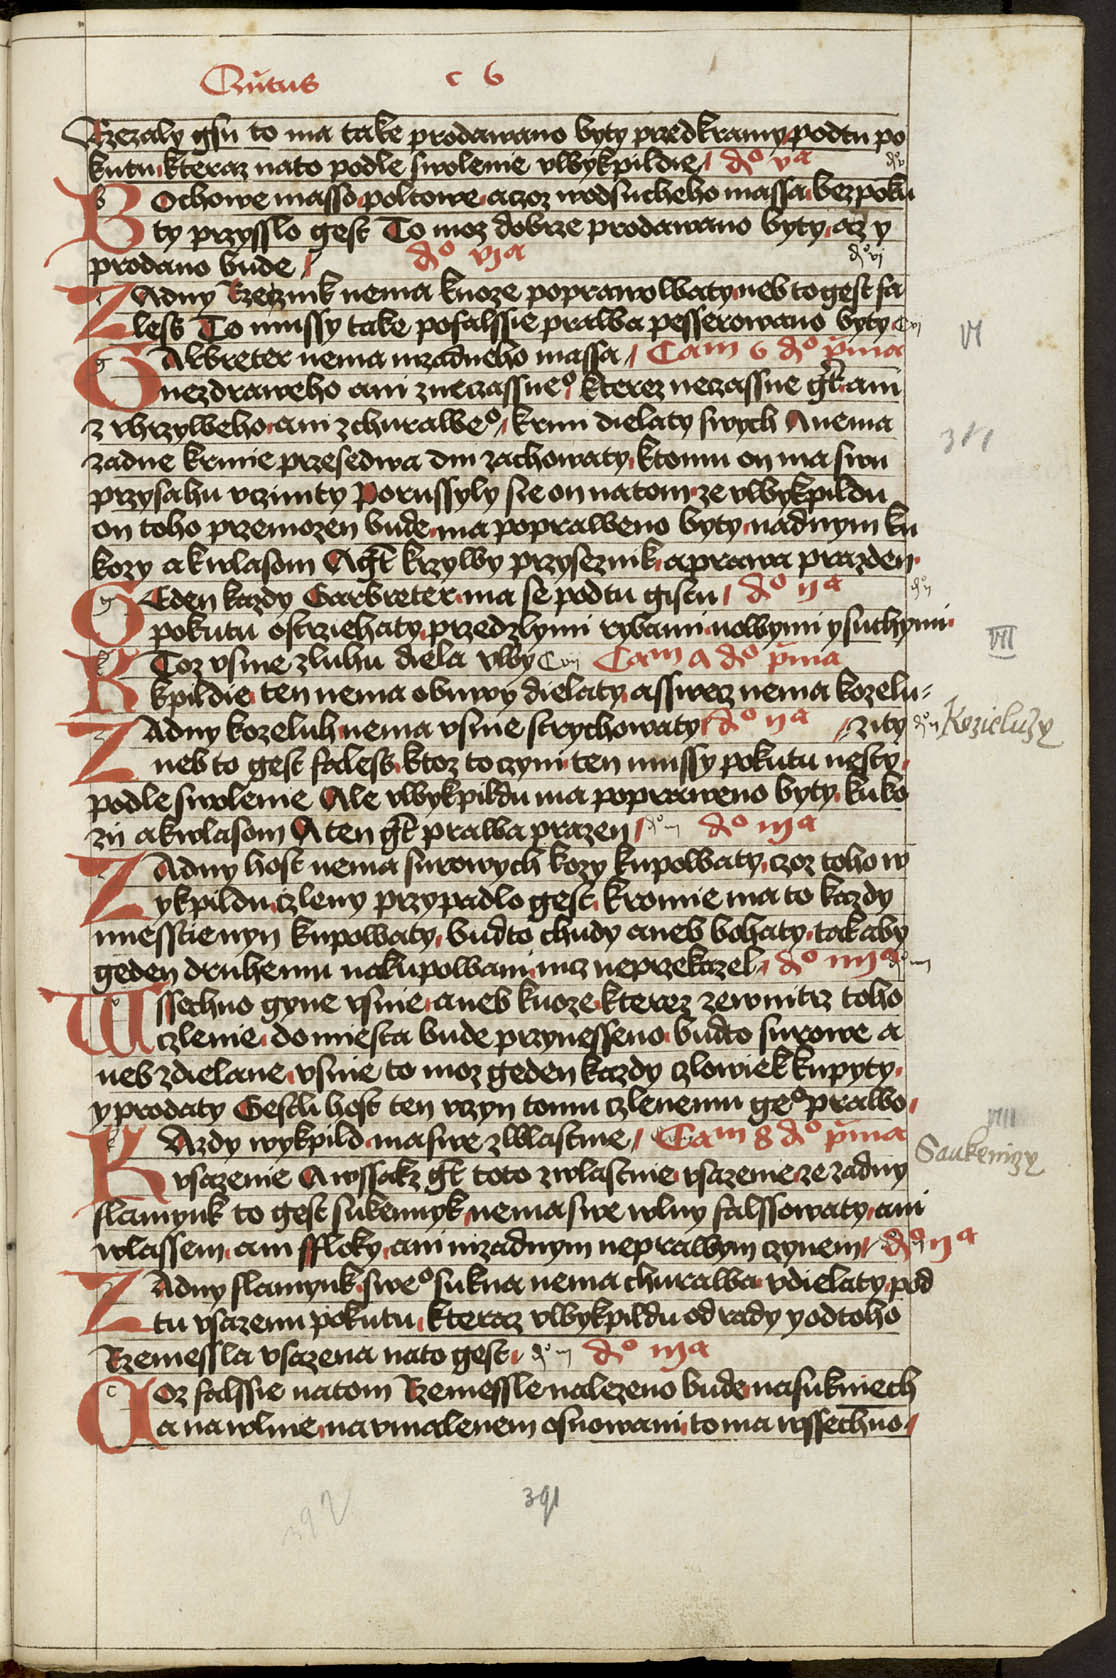 Qui͂tus c 6
Rzezaly gsu to ma take prodawano byty przedkramy podtu po
kutu kteraz nato podle swolenie vWykpildie dͦ vᵃ
BOchowe masso poltowe aczoz wodsucheho massa bezpoku
ty przysslo gest To moz dobrze prodawano byty az y
prodano bude dͦ vjᵃ dͦ vj
ZAdny Rzeznik nema kuoze poprawowWaty neb to gest fa
less To mussy take pofalssie praWa pesserowano byty
GArbreter nema nizadneho massa Caᵐ 6 dͦ p͂ma
VI
nezdraweho ani zneczassneͦ kterez neczassne gt͂ ani
z vhrzyWeho ani z churaWeͦ krmi dielaty swych A nema
zadne krmie przesedwa dni zachowaty ktomu on ma swu
przysahu vczinity Porussyly sie on natom ze vWykpildu
on toho przemozen bude ma popraWeno byty nadnym ku
kozy a kwlasom Agt͂ krzywy przyseznik a prawa prazden
GEden kazdy Garbreter ma se podtu gistu dͦ ijᵃ
pokutu ostrziehaty przedzlymi rybami nowymi y suchymi
VII
KToz vsnie zluhu diela vWy Caᵐ Λ dͦ p͂ma
kpildie ten nema obuwy dielaty assweez nema kozelu
ZAdny kozeluh nema vsnie strychowaty dͦ ijᵃ zity
Kozieluzy
neb to gest faless ktoz to czyni ten mussy pokutu nesty
podle swolenie Ale vWykpildu ma popraweno byty kuko
zii akwlasom A ten gt͂ praWa prazen dͦ iijᵃ
ZAdny host nema surowych kozy kupoWaty czoz toho w
ykpildu czleny przypadlo gest kromie ma to kazdy
miesstienyn kupoWaty budto chudy aneb bohaty tak aby
geden druhemu nakupoWani nicz neprzekazel dͦ iiijᵃ
WSsechno gyne vsnie aneb kuoze kterez zewnitrz toho
czlenie do miesta bude przynesseno budto surowe a
neb zdielane vsnie to moz geden kazdy czlowiek kupyty
y prodaty Gestli host ten vczyn tomu czlenemu geͦ praWo
KAzdy wykpild ma swe zWlastnie Caᵐ 8 dͦ p͂ma
VIII
Saukenizy
vsazenie Awssakz gt͂ toto zwlastnie vsazenie ze zadny
flamynk to gest sukennyk nema swe wlny falssowaty ani
wlassem ani ffloky ani nizadnym nepraWym czynem dͦ ijᵃ
ZAdny flamynk sweͦ sukna nema churaWa vdielaty pod
tu vsazenu pokutu kteraz vWykpildu odrady y odtoho
Rzemessla vsazena nato gest dͦ iijᵃ
COz falssie natom Rzemessle nalezeno bude nasukniech
a na wlnie na vmalenem osnowani to ma wssechno
391
392